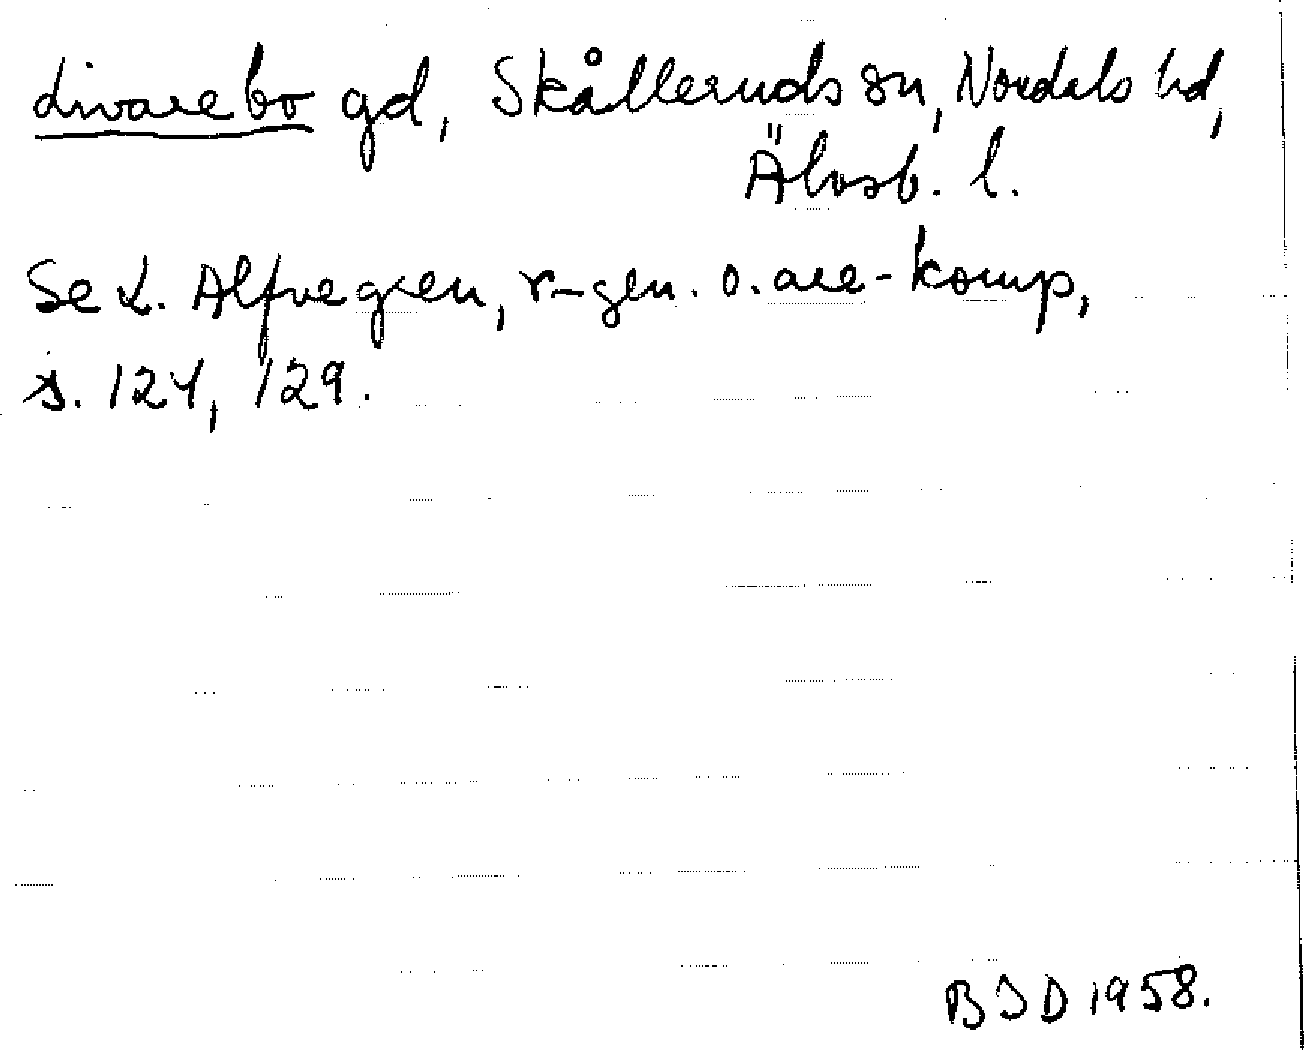 Livarebo gd, Skålleruds sn, Nordals hd,
Älvsb. l.
Se L. Alfvegren, r-gen. o. are-komp,
s. 124, 129.
BSD 1958.